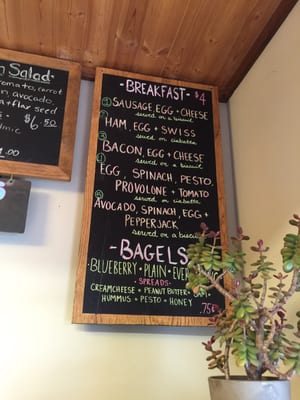 Salad
tomato, carrot
n, avocado,
+ flax seed
$6.50
1.00
-BREAKFAST- $4
SAUSAGE, EGG + CHEESE
served on a biscuit
HAM, EGG + SWISS
served on ciabatta
BACON, EGG + CHEESE
served on a biscuit
EGG, SPINACH, PESTO,
PROVOLONE + TOMATO
served on ciabatta
AVOCADO, SPINACH, EGG +
PEPPERJACK
served on a biscuit
-BAGELS-
·BLUEBERRY·PLAIN·
·SPREADS·
CREAMCHEESE · PEANUT BUTTER
HUMMUS · PESTO · HONEY
.75¢